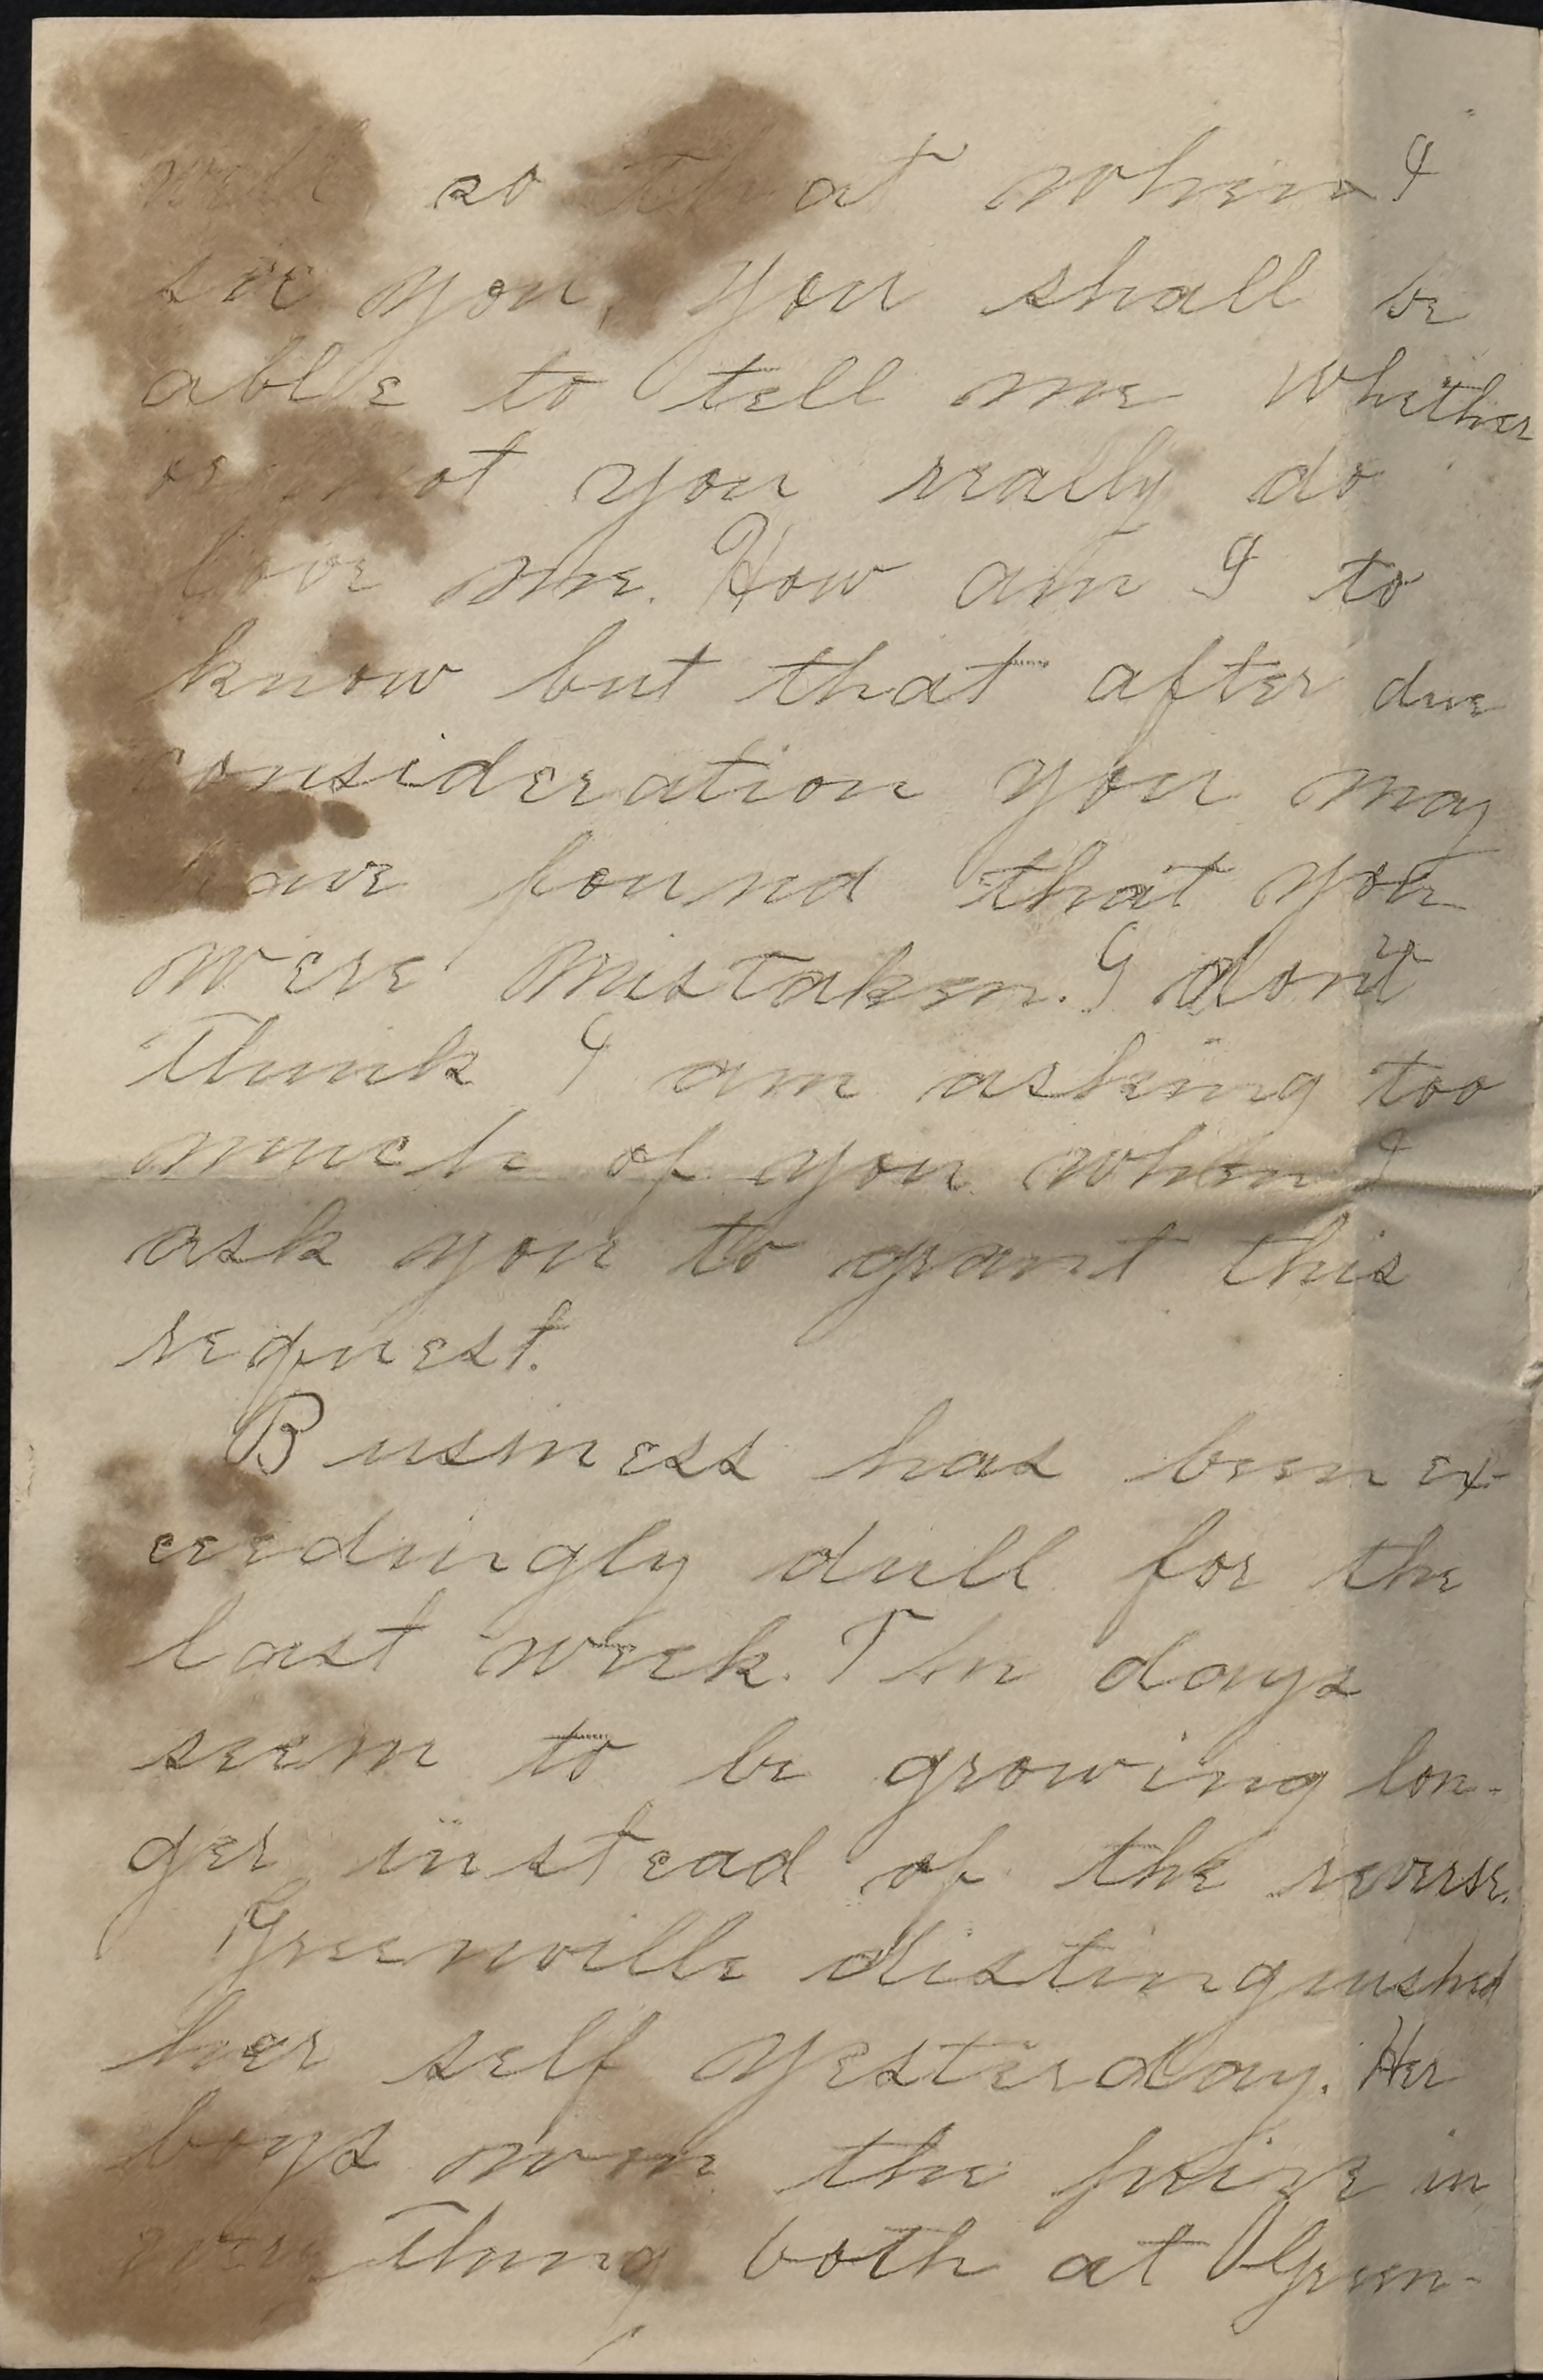 well so that when I
see you, you shall be
able to tell me whether
or not you really do
love me. How am I to
know but that after due
consideration you may
have found that you
were mistaken. I dont
think I am asking too
much of you when I
ask you to grant this
request.
Business has been ex-
ceedingly dull for the
last week. The days
seem to be growing lon-
ger instead of the reverse.
Greenville distinguished
her self yesterday. Her
boys won the prize in
every thing both at Green-